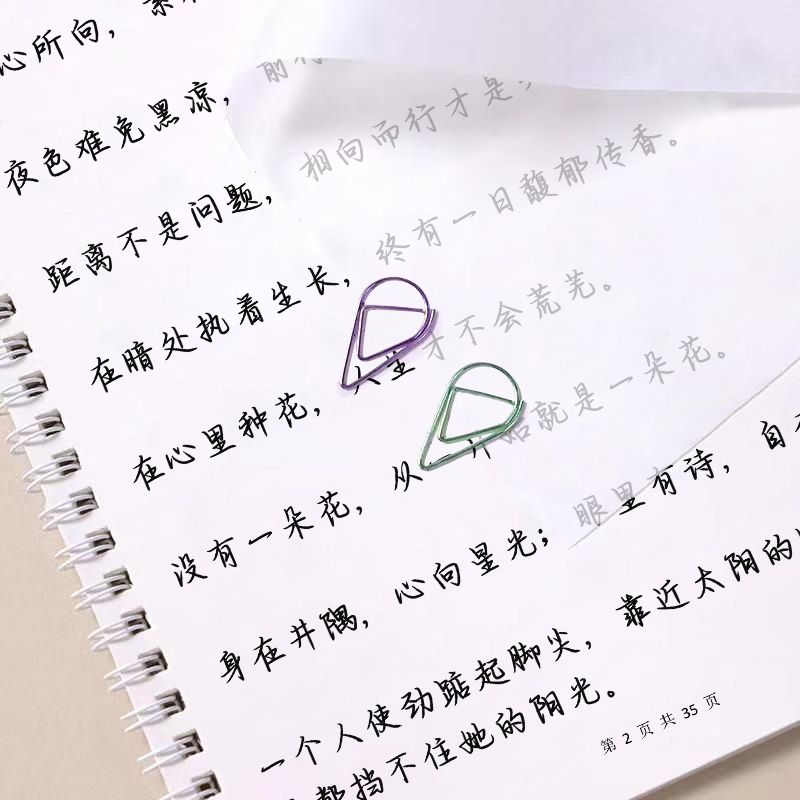 心所向，素
夜色难免黑凉，前行
距离不是问题，相向而行才是
在暗处执着生长，终有一日馥郁传香。
在心里种花，人生才不会荒芜。
没有一朵花，从一开始就是一朵花。
身在井隅，心向星光；眼里有诗，自
一个人使劲踮起脚尖，靠近太阳的
都挡不住她的阳光。
第 2 页 共 35 页